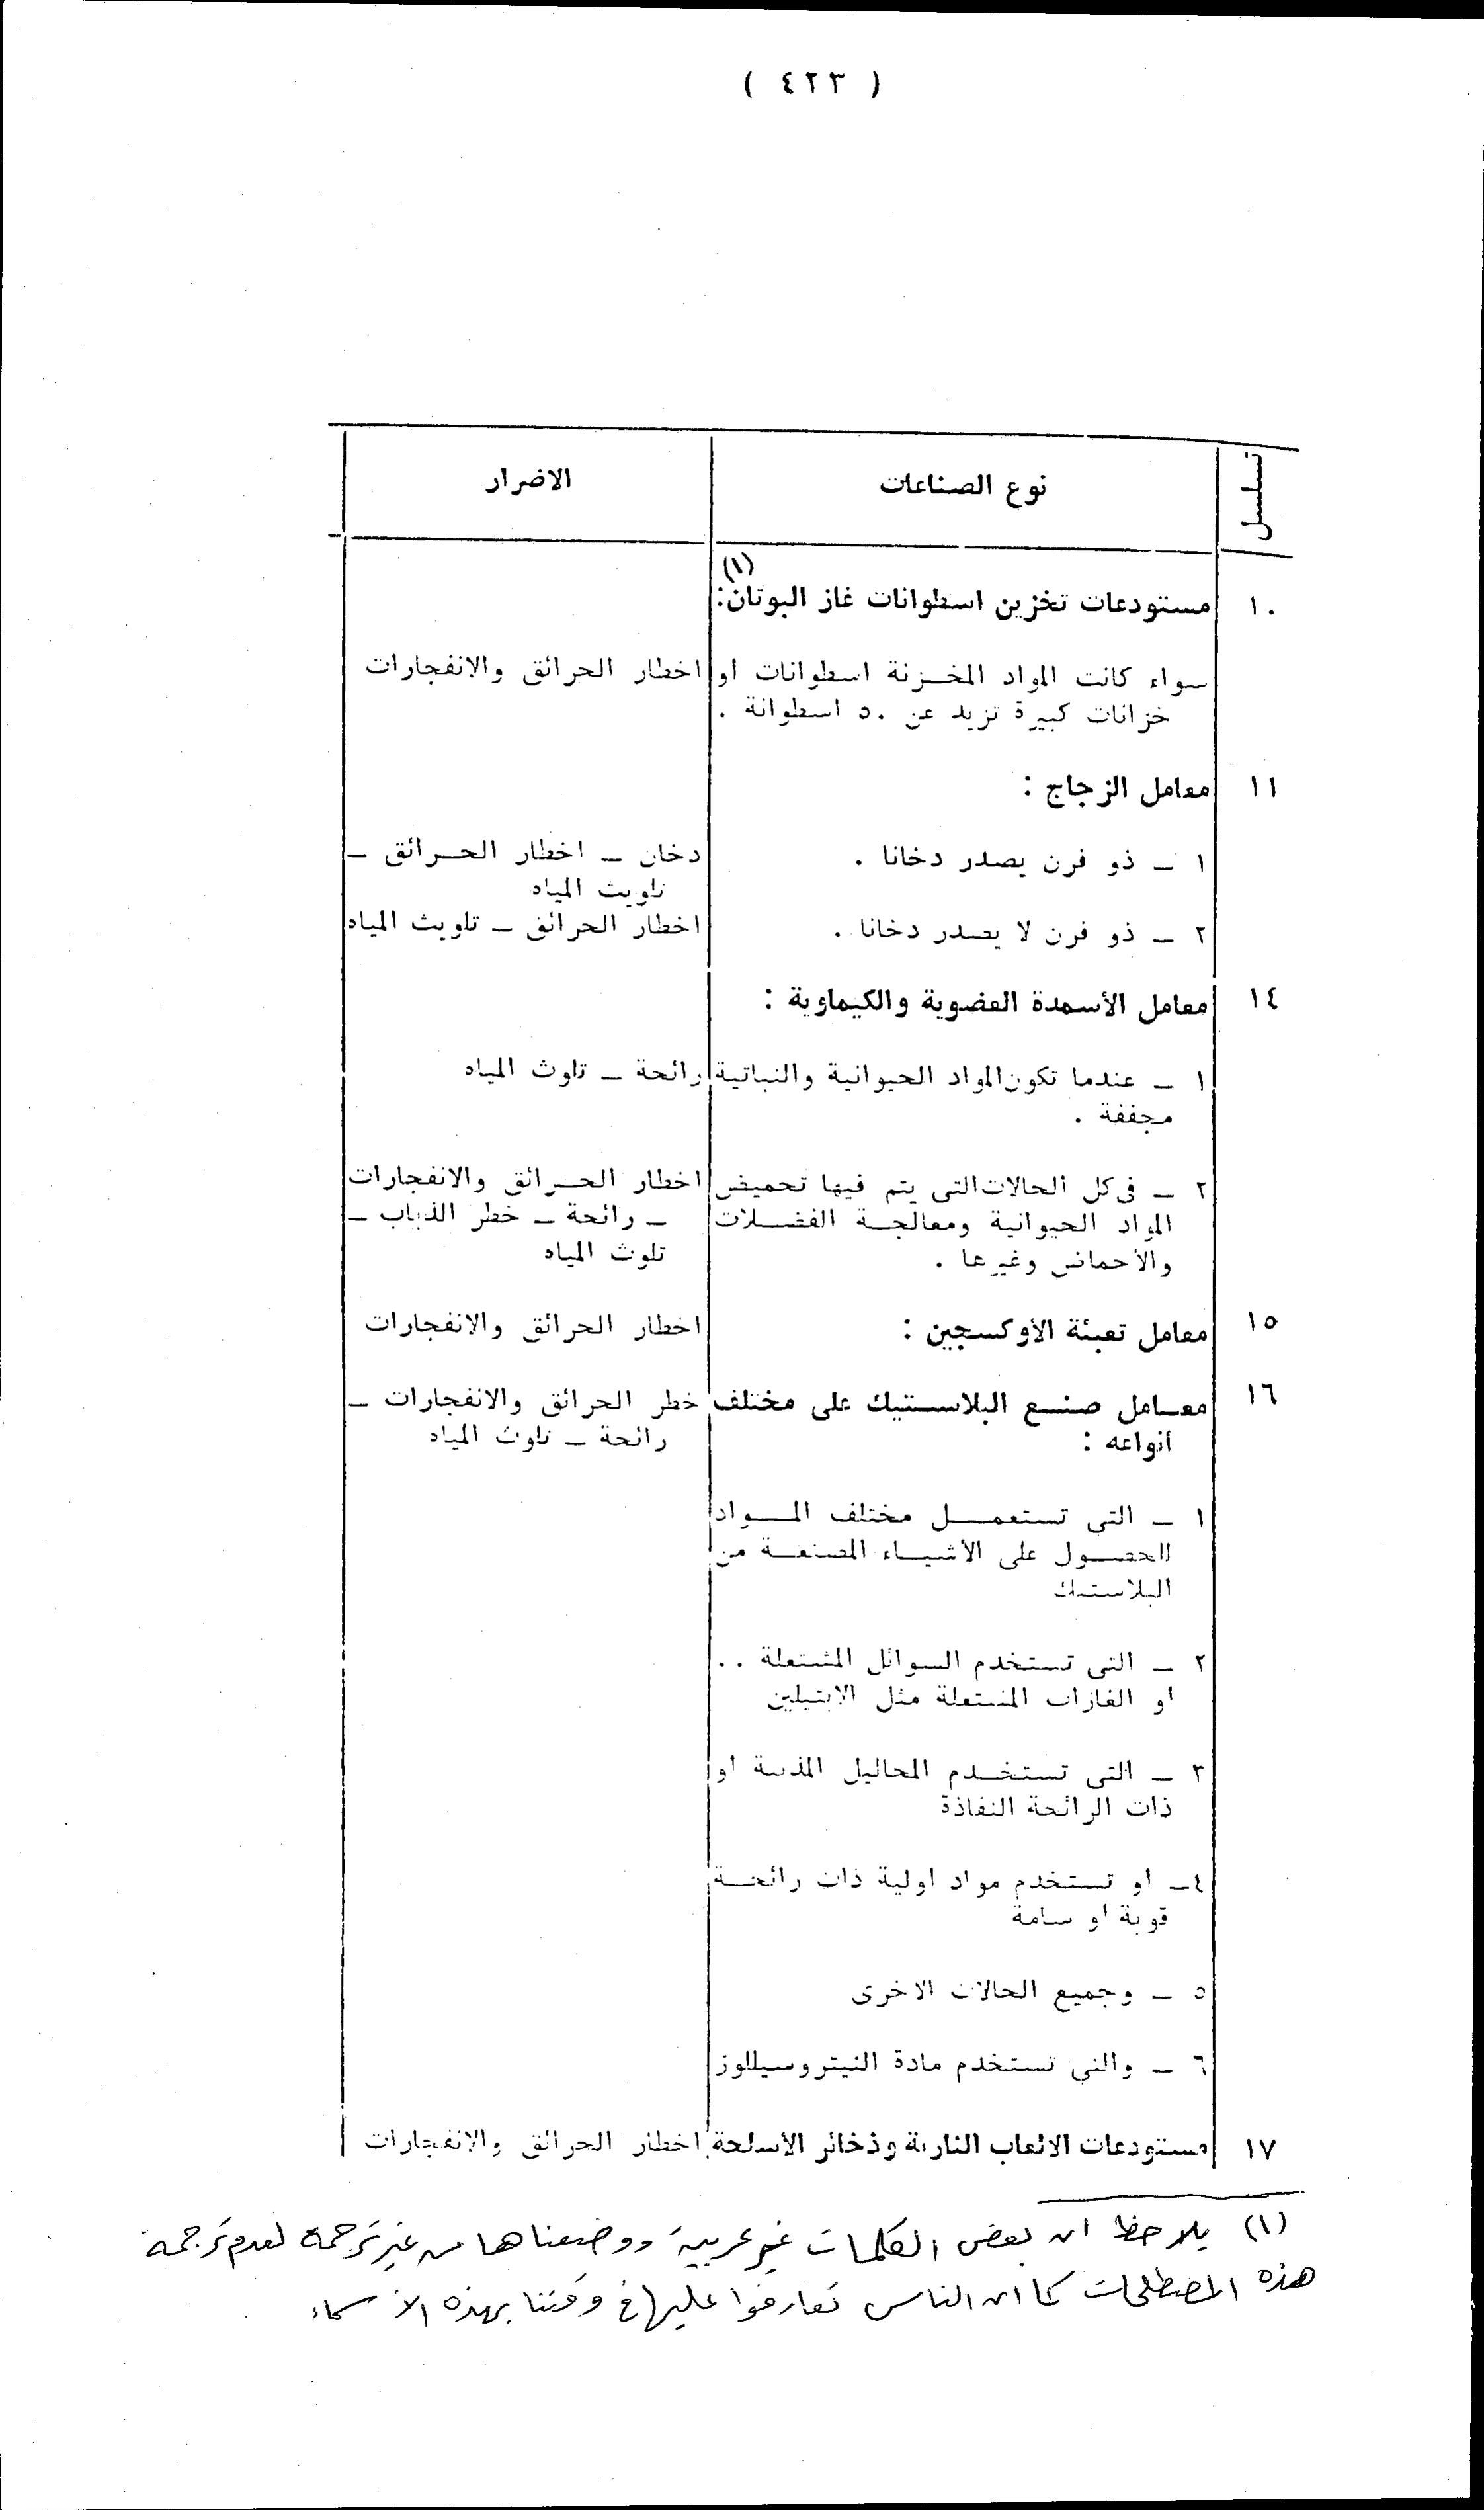 ( ٤٢٣ )
تسلسل
نوع الصناعات
الاضرار
١٠
مستودعات تخزين اسطوانات غاز البوتان: (١)
سواء كانت المواد المخـزنة اسطوانات او
خزانات كبيرة تزيد عن ٥٠ اسطوانة .
اخطار الحرائق والانفجارات
١١
معامل الزجاج :
١ ـ ذو فرن يصدر دخانا .
دخان ـ اخطار الحـرائق ـ
تلويث المياه
٢ ـ ذو فرن لا يصدر دخانا .
اخطار الحرائق ـ تلويث المياه
١٤
معامل الأسمدة العضوية والكيماوية :
١ ـ عندما تكون المواد الحيوانية والنباتية
مجففة .
رائحة ـ تلوث المياه
٢ ـ فى كل الحالات التى يتم فيها تحميض
المواد الحيوانية ومعالجـة الفضـلات
والاحماض وغيرها .
اخطار الحـرائق والانفجارات
ـ رائحة ـ خطر الذباب ـ
تلوث المياه
١٥
معامل تعبئة الأوكسجين :
اخطار الحرائق والانفجارات
١٦
معـامل صنـع البلاسـتيك على مختلف
أنواعه :
خطر الحرائق والانفجارات ـ
رائحة ـ تلوث المياه
١ ـ التى تستعمـل مختلف المـواد
للحصـول على الأشيـاء المصنعـة من
البلاستيك
٢ ـ التى تستخدم السوائل المشتعلة ..
او الغازات المشتعلة مثل الايتيلين
٣ ـ التى تستخـدم المحاليل المذيبة او
ذات الرائحة النفاذة
٤ـ او تستخدم مواد اولية ذات رائحـة
قوية او سامة
٥ ـ وجميع الحالات الاخرى
٦ ـ والتى تستخدم مادة النيتروسيللوز
١٧
مستودعات الالعاب النارية وذخائر الأسلحة
اخطار الحرائق والانفجارات
(١) يلاحظ ان بعض الكلمات غير عربية ووضعناها من غير ترجمة لعدم ترجمة
هذه المصطلحات كما ان الناس تعارفوا عليها في وقتنا بهذه الأسماء